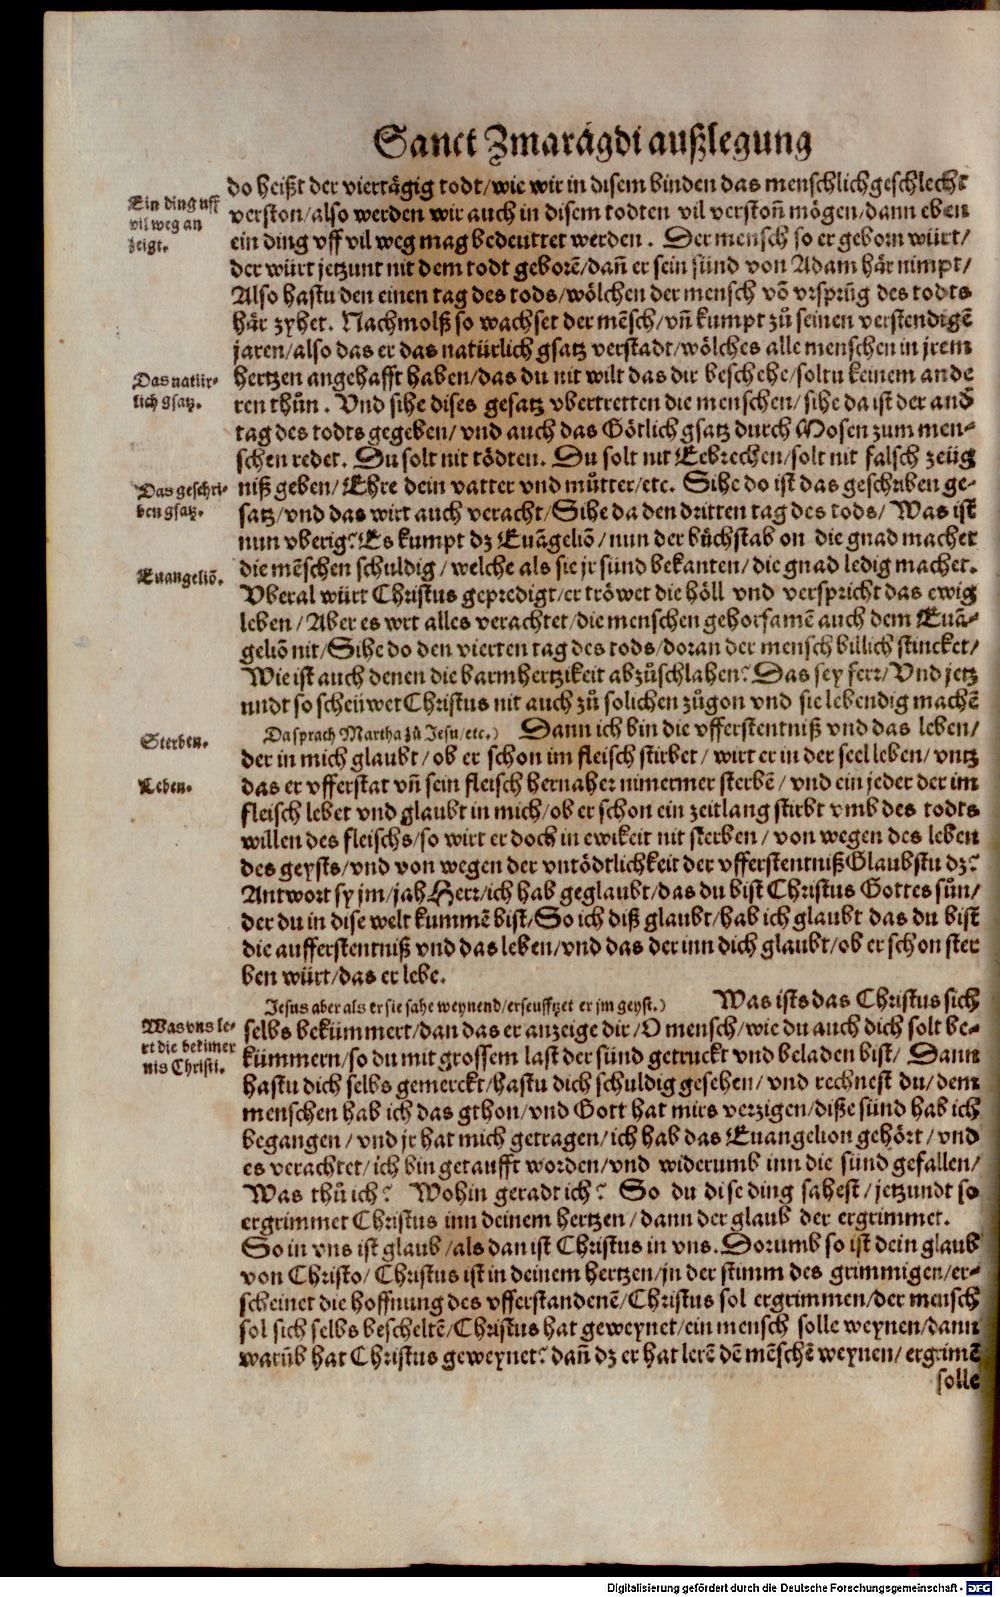 Sanct Zmarägdi außlegung
do heißt der viertägig todt/wie wir in disem binden das menschlich geschlecht
Ein ding uff
vil weg an
zeigt.
verston/also werden wir auch in disem todten vil verston̄ mögen/dann eben
ein ding vff vil weg mag bedeuttet werden. Der mensch so er geborn würt/
der würt jetzunt nit dem todt geborē/dan̄ er sein sünd von Adam här nimpt/
Also hastu den einen tag des tods/wölchen der mensch vō vrsprūg des todts
här zyhet. Nachmolß so wachset der mēsch/vn̄ kumpt zů seinen verstendigē
jaren/also das er das natürlich gsatz verstadt/wölches alle menschen in jrem
Das natür-
lich gsatz.
hertzen angehafft haben/das du nit wilt das dir beschehe/soltu keinem ande
ren thůn. Vnd sihe dises gesatz vbertretten die menschen/sihe da ist der and̄
tag des todts gegeben/vnd auch das Götlich gsatz durch Mosen zum men-
schen redet. Du solt nit tödten. Du solt nit Eebrechen/solt nit falsch zeüg
Das geschri-
ben gsatz.
niß geben/Ehre dein vatter vnd můtter/etc. Sihe do ist das geschriben ge-
satz/vnd das wirt auch veracht/Sihe da den dritten tag des tods/Was ist
nun vberig? Es kumpt dz Euāgeliō/nun der bůchstab on die gnad machet
Euangeliō.
die mēschen schuldig/welche als sie jr sünd bekanten/die gnad ledig machet.
Vberal würt Christus gepredigt/er tröwet die höll vnd verspricht das ewig
leben/Aber es wrt alles verachtet/die menschen gehorsamē auch dem Euā-
geliō nit/Sihe do den vierten tag des tods/doran der mensch billich stincket/
Wie ist auch denen die barmhertzikeit abzůschlahen? Das sey ferr/Vnd jetz
undt so scheüwet Christus nit auch zů solichen zůgon vnd sie lebendig machē
Sterben.
Da sprach Martha zů Jesu/etc.) Dann ich bin die vfferstentniß vnd das leben/
der in mich glaubt/ob er schon im fleisch stirbet/wirt er in der seel leben/vntz
Leben.
das er vfferstat vn̄ sein fleisch hernaher nimermer sterbē/vnd ein jeder der im
fleisch lebet vnd glaubt in mich/ob er schon ein zeitlang stirbt vmb des todts
willen des fleischs/so wirt er doch in ewikeit nit sterben/von wegen des leben
des geysts/vnd von wegen der vntödtlichkeit der vfferstentniß Glaubstu dz?
Antwort sy jm/jah Herr/ich hab geglaubt/das du bist Christus Gottes sůn/
der du in dise welt kummē bist/So ich diß glaubt/hab ich glaubt das du bist
die aufferstentniß vnd das leben/vnd das der inn dich glaubt/ob er schon ster
ben würt/das er lebe.
Jesus aber als er sie sahe weynend/erseufftzet er jm geyst.) Was ists das Christus sich
Was vns le-
rt die bekümer
nis Christi.
selbs bekümmert/dan das er anzeige dir/O mensch/wie du auch dich solt be-
kümmern/so du mit grossem last der sünd getruckt vnd beladen bist/Dann
hastu dich selbs gemerckt/hastu dich schuldig gesehen/vnd rechnest du/dem
menschen hab ich das gthon/vnd Gott hat mirs verzigen/diße sünd hab ich
begangen/vnd jr hat mich getragen/ich hab das Euangelion gehört/vnd
es verachtet/ich bin getaufft worden/vnd widerumb inn die sünd gefallen/
Was thů ich? Wohin geradt ich? So du dise ding sahest/jetzundt so
ergrimmet Christus inn deinem hertzen/dann der glaub der ergrimmet.
So in vns ist glaub/als dan ist Christus in vns. Dorumb so ist dein glaub
von Christo/Christus ist in deinem hertzen/jn der stimm des grimmigen/er-
scheinet die hoffnung des vfferstandenē/Christus sol ergrimmen/der mensch
sol sich selbs bescheltē/Christus hat geweynet/ein mensch solle weynen/dann
warūb hat Christus geweynet? dan̄ dz er hat lerē dē mēschē weynen/ergrimē
solle
Digitalisierung gefördert durch die Deutsche Forschungsgemeinschaft - DFG